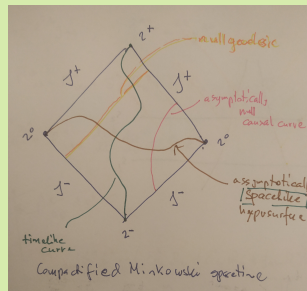 i⁺
null geodesic
𝒥⁺
𝒥⁺
asymptotically
null
causal curve
i⁰
i⁰
𝒥⁻
𝒥⁻
asymptotically
spacelike
hypersurface
timelike
curve
i⁻
Compactified Minkowski spacetime